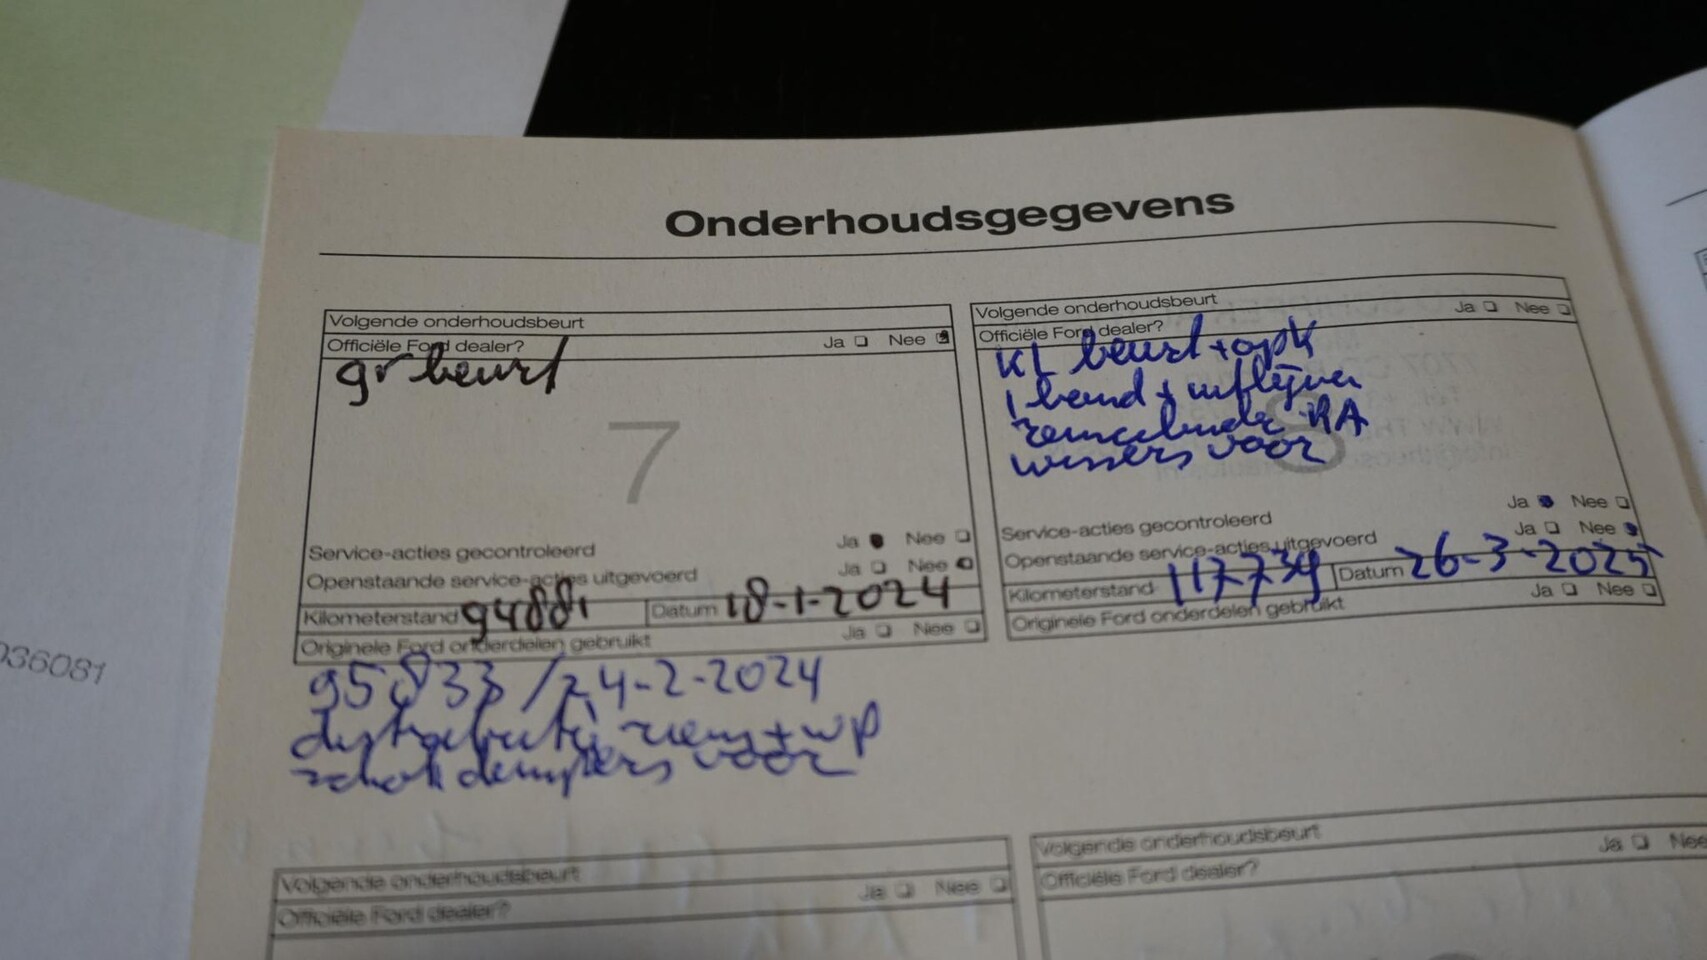 Onderhoudsgegevens
Volgende onderhoudsbeurt
Officiële Ford dealer? Ja Nee
gr beurt
7
Service-acties gecontroleerd Ja Nee
Openstaande service-acties uitgevoerd Ja Nee
Kilometerstand 94881 Datum 18-1-2024
Originele Ford onderdelen gebruikt Ja Nee
95833 / 24-2-2024
distributie riem + wp
schokdempers voor
Volgende onderhoudsbeurt
Officiële Ford dealer? Ja Nee
KL beurt + apk
1 band +
remcilinder RA
wissers voor
8
Service-acties gecontroleerd Ja Nee
Openstaande service-acties uitgevoerd Ja Nee
Kilometerstand 117739 Datum 26-3-2025
Originele Ford onderdelen gebruikt Ja Nee
Volgende onderhoudsbeurt
Officiële Ford dealer? Ja Nee
Volgende onderhoudsbeurt
Officiële Ford dealer? Ja Nee
036081